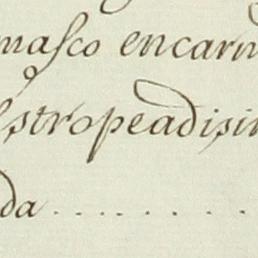 masco encarn
estropeadisi
da . . . . . . . .